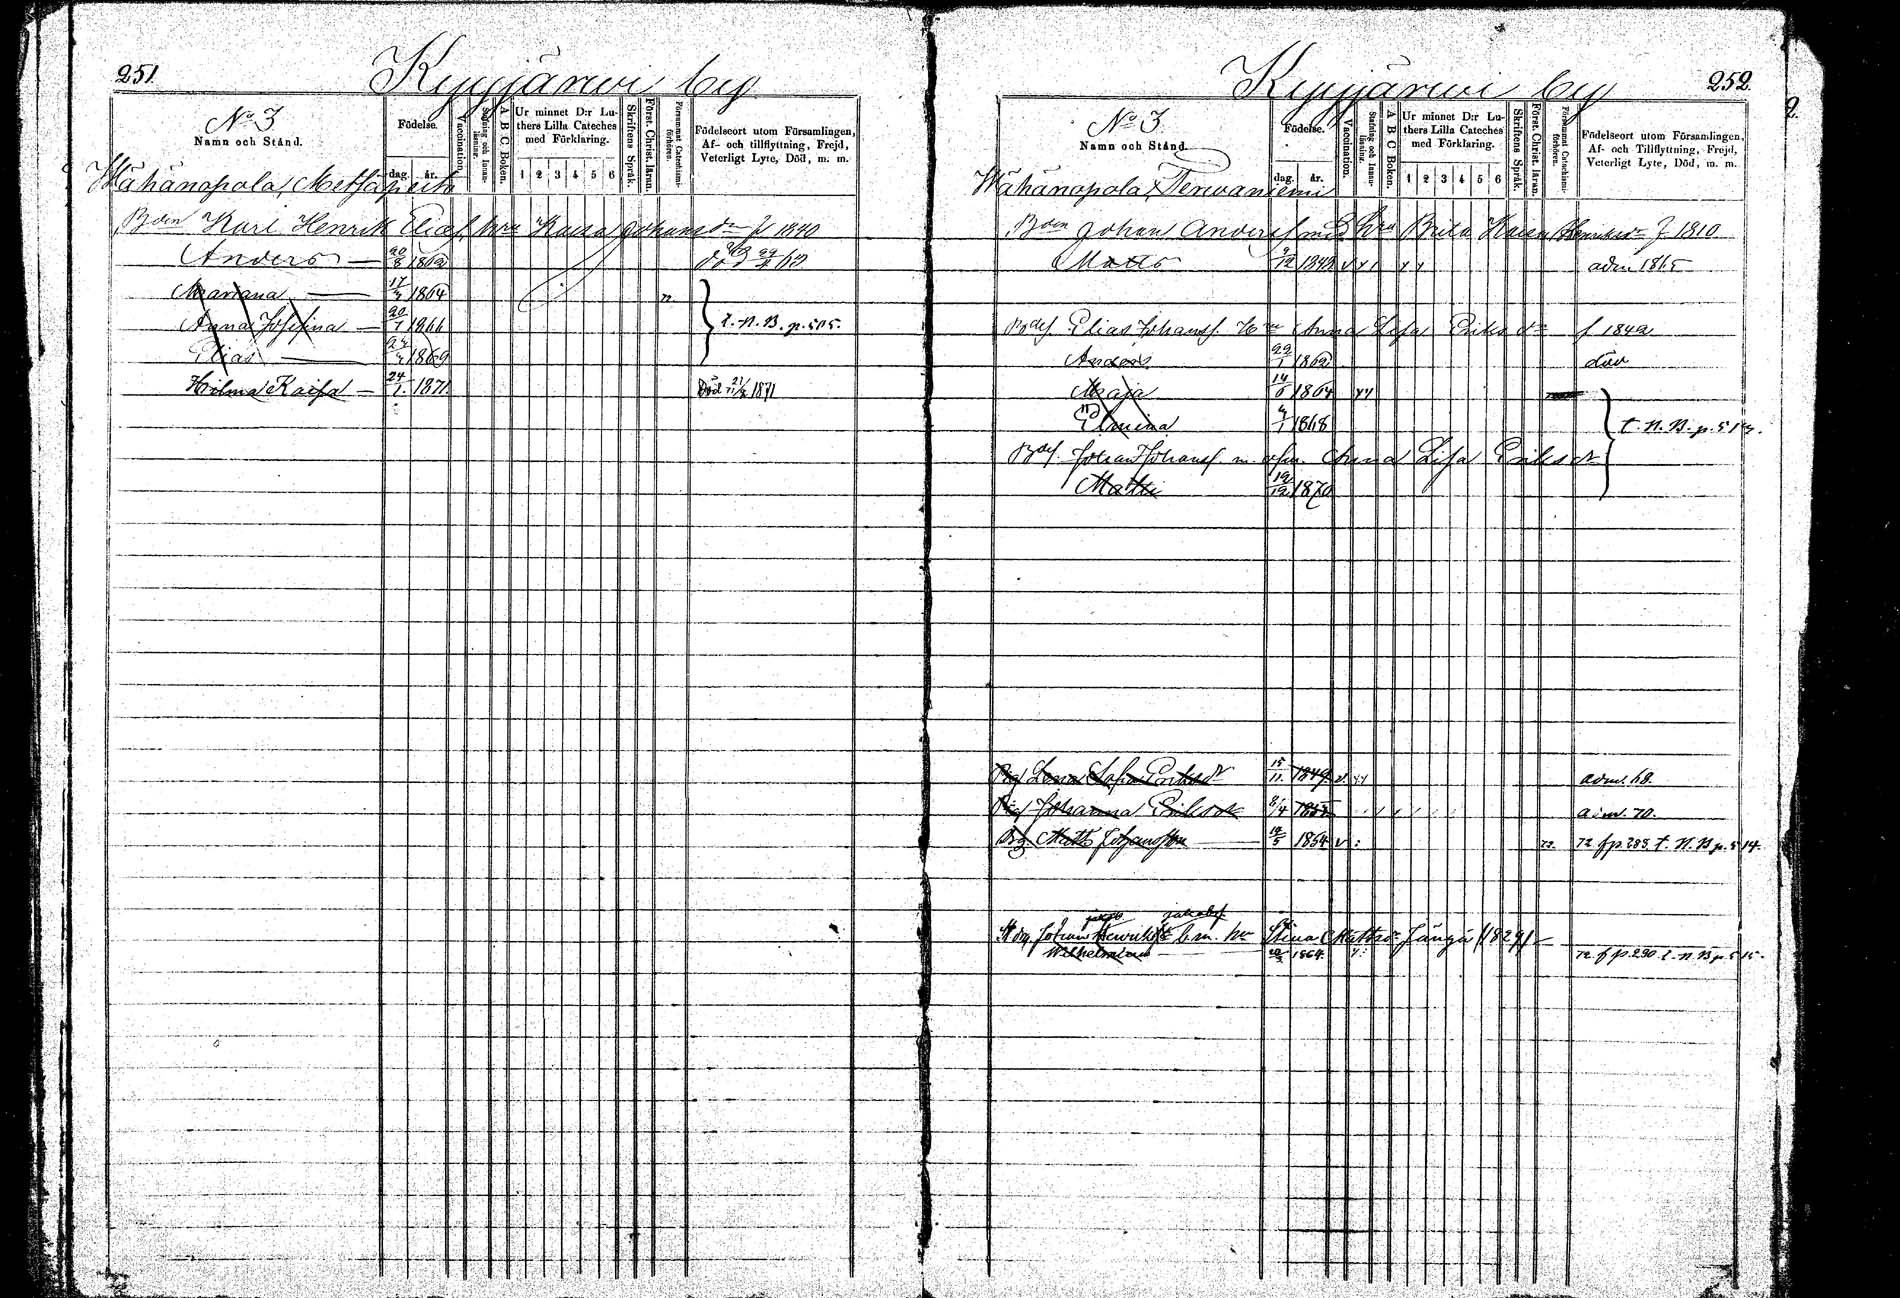 251.
Kyyjärwi by
No 3
Namn och Stånd.
Födelse.
dag. år.
Vaccination.
Stafning och Innanläsning.
A B C Boken.
Ur minnet D:r Luthers Lilla Cateches med Förklaring.
1 2 3 4 5 6
Skriftens Språk.
Först. Christ. läran.
Försummat Catechismiförhören.
Födelseort utom Församlingen, Af- och tillflyttning, Frejd, Veterligt Lyte, Död, m. m.
Wähänopola, Metsäpelto
Bden Karl Henrik Eliass. hru Kaisa Johansdr f 1840
Anders — 20/8 1862 död 29/4 63
Mariana — 17/4 1864 n
Anna Josefina — 20/1 1866 t. N. B. p. 505.
Elias — 24/4 1869
Hilma Kaisa — 24/1. 1871. Död 21/2 1871
252.
Kyyjärwi by
No 3
Namn och Stånd.
Födelse.
dag. år.
Vaccination.
Stafning och Innanläsning.
A B C Boken.
Ur minnet D:r Luthers Lilla Cateches med Förklaring.
1 2 3 4 5 6
Skriftens Språk.
Först. Christ. läran.
Försummat Catechismiförhören.
Födelseort utom Församlingen, Af- och Tillflyttning, Frejd, Veterligt Lyte, Död, m. m.
Wähänopola, Terwaniemi
Bden Johan Anderss. med hru Brita Kaisa Henriksdr f 1810
Matts 9/12 1848 v y y y adm 1865
Bdes. Elias Johanss. Hru Anna Lisa Eriks dr f 1842
Anders 29/1 1862 död
Maja 14/6 1864 yy
Elmina 4/1 1868 t. N. B. p. 513.
Bdes. Johan Johanss. m. ofm. Anna Lisa Eriksdr
Matti 12/12 1870
Pig Lena Sofia Eriksdr 15/11. 1849. v. yy adm. 68.
Pig Johanna Eriksdr 8/4 1852 adm. 70.
Drg. Matts Johansson 12/5 1854 v : 72. 72 f p. 283 t. N. B p. 514.
Jakob Jakobss.
St drg. Johan Henrikss. b. m. hu Stina Mattsdr Jängä (1829) —
Wilhelmina 20/3 1864. y: 72. f p. 290 t. N. B p. 515.